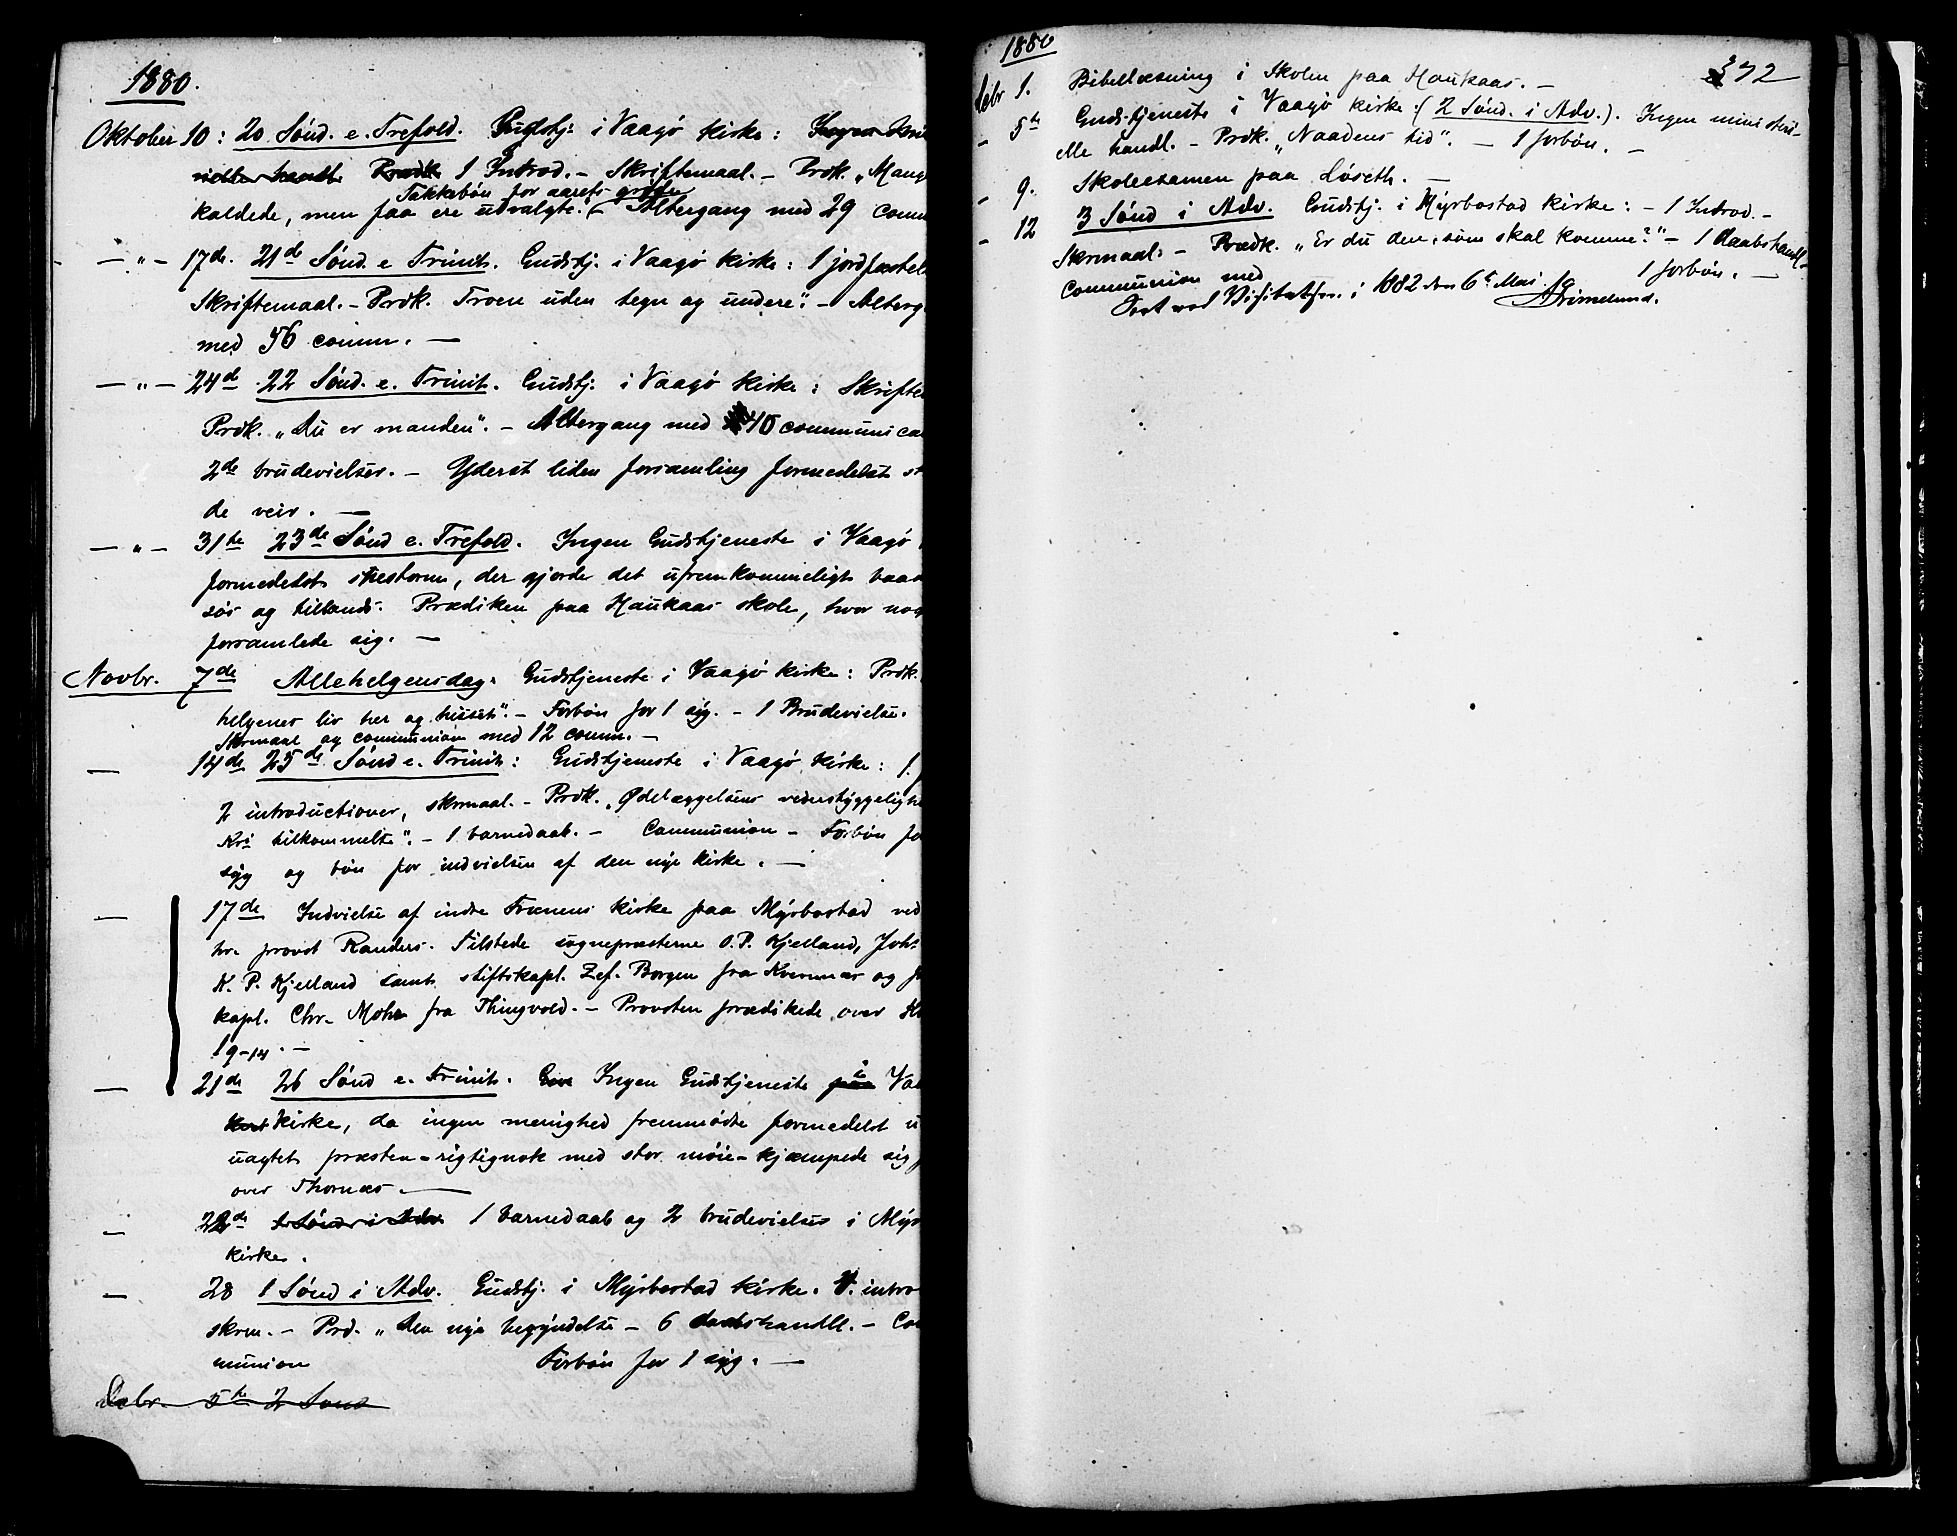 1880.
Oktober 10: 20 Sønd. e. Trefold. Gudstj. i Vaagø kirke: Ingen
1 Introd. - Skriftemaal. - Prdk. „Mange
Takkebøn for aarets grøde
kaldede, men faa ere udvalgte." - Altergang med 29 comm
— „ — 17de. 21de Sønd. e Trinit. Gudstj. i Vaagø kirke: 1 jordfæstel
Skriftemaal. - Prdk. Troen uden tegn og undere". - Alterg
med 56 comm. —
— „ — 24de 22 Sønd. e. Trinit. Gudstj. i Vaagø kirke: Skrifte
Prdk. „Du er manden". - Altergang med 40 communica
2de brudevielser. - Yderst liden forsamling formedelst st
de veir. —
— „ — 31te 23de Sønd e. Trefold. Ingen Gudstjeneste i Vaagø
formedelst storm, der gjorde det ufremkommeligt baad
søs og tillands. Prædiken paa Haukaas skole, hvor nog
forsamlede sig. —
Novbr. 7de Allehelgensdag. Gudstjeneste i Vaagø kirke: Prdk.
helgenes liv her og hisset". - Forbøn for 1 syg. - 1 Brudevielse.
Skrmaal og communion med 12 comm. —
— 14de 25de Sønd e. Trinit: Gudstjeneste i Vaagø kirke: 1.
2 introductioner, skrmaal. - Prdk. „Ødelæggelsens vederstyggelighe
Kri tilkommelse". - 1 barnedaab. - Communion - Forbøn for
syg og bøn for indvielsen af den nye kirke. —
— 17de Indvielse af indre Frænens kirke paa Myrbostad ved
hr. provst Randers. Tilstede sognepræsterne O. P. Kjelland, Joh.
K. P. Kjelland samt stiftskapl. Zef. Borgen fra Kvernnæs og p
kapl. Chr. Mohr fra Thingvold. - Provsten prædikede over
19-14. —
— 21de 26 Sønd e. Trinit. Ingen Gudstjeneste i Vaa
kirke, da ingen menighed fremmødte formedelst u
uagtet præsten - rigtignok med stor møie - kjæmpede sig
over Thornæs. —
— 22de 1 Sønd i Adv 1 barnedaab og 2 brudevielser i Myr
kirke.
— 28 1 Sønd i Adv. Gudstj. i Myrbostad kirke. intro
skrm. - Prd. „Den nye begyndelse - 6 daabshandll. - Com
munion Forbøn for 1 syg. —
Debr. 5te 2 Sønd
1880
372
Debr 1. Bibellæsning i Skolen paa Haukaas. —
- 5te Gudstjeneste i Vaagø kirke. (2 Sønd. i Adv.). Ingen ministeri-
elle handl. - Prdk. „Naadens tid". - 1 forbøn. —
- 9. Skoleexamen paa Løseth. —
- 12 3 Sønd i Adv. Gudstj. i Myrbostad kirke: - 1 Introd. -
Skrmaal: - Prædk. „Er du den, som skal komme?" - 1 daabshandl -
Communion med 1 forbøn. —
Sect ved Visitatsen i 1882 den 6te Mai. Grimelund.